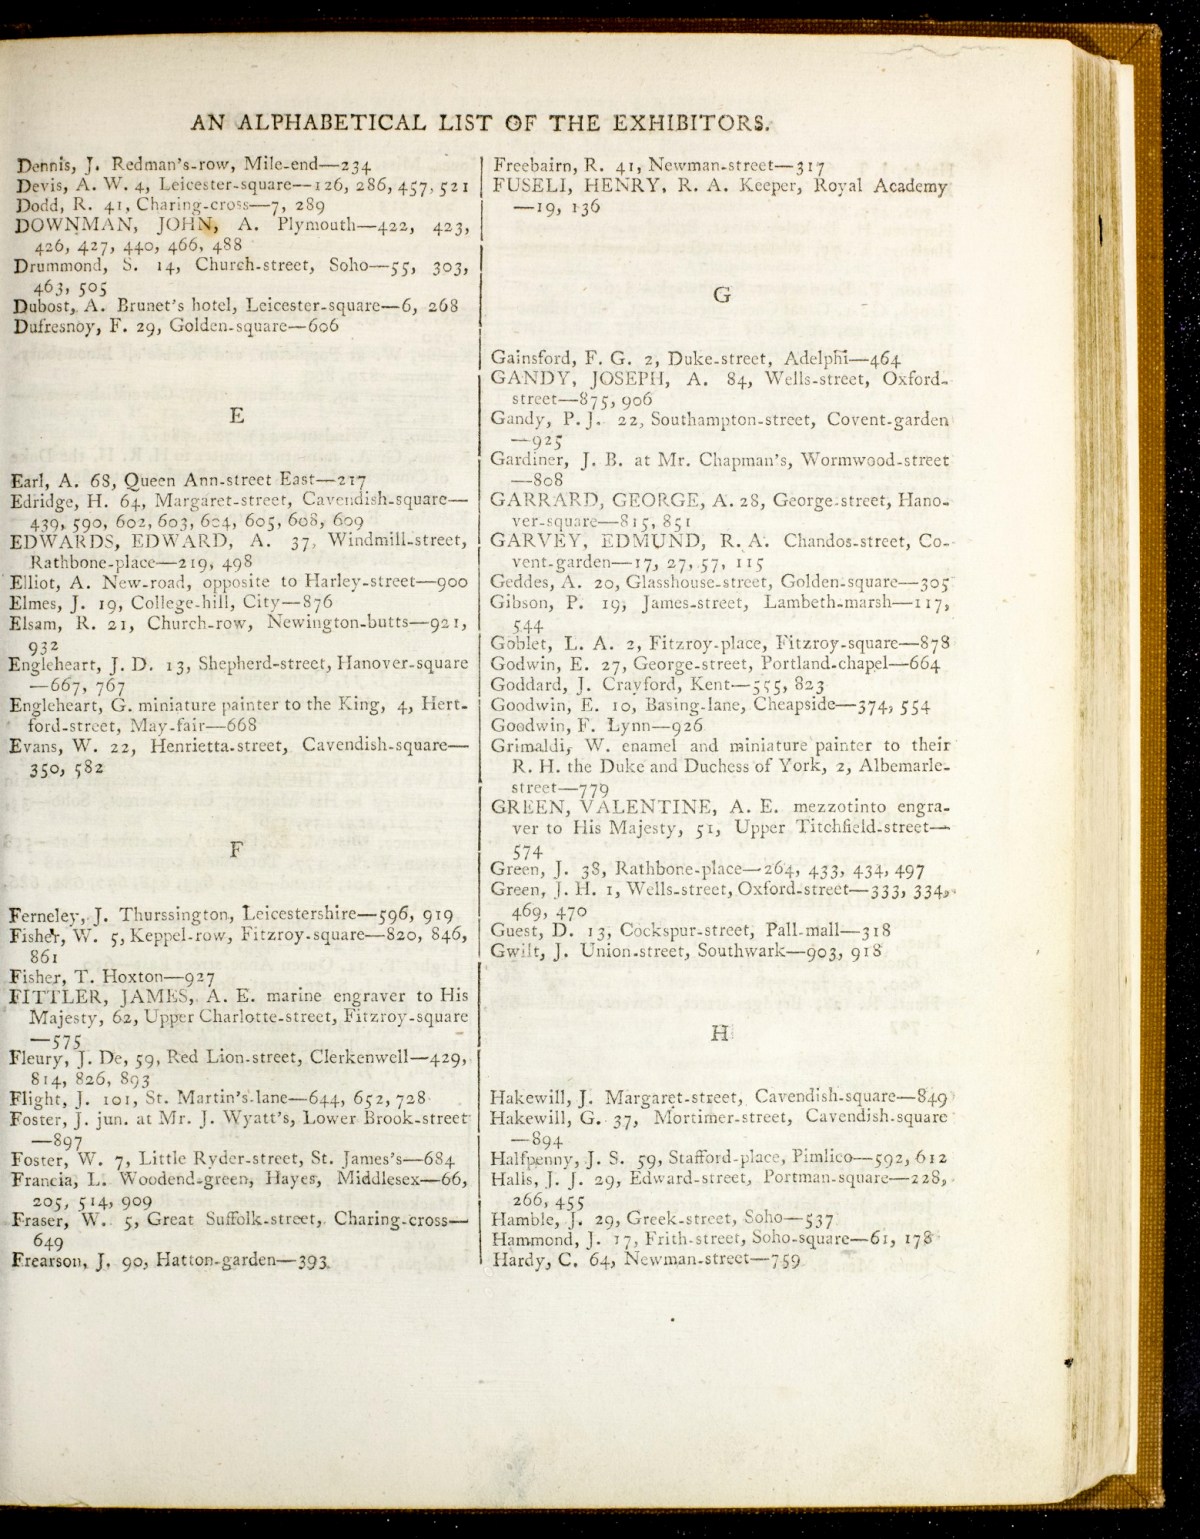 AN ALPHABETICAL LIST OF THE EXHIBITORS.
Dennis, J. Redman's-row, Mile-end—234
Devis, A. W. 4, Leicester-square—126, 286, 457, 521
Dodd, R. 41, Charing-cross—7, 289
DOWNMAN, JOHN, A. Plymouth—422, 423,
426, 427, 440, 466, 488
Drummond, S. 14, Church-street, Soho—55, 303,
463, 505
Dubost, A. Brunet's hotel, Leicester-square—6, 268
Dufresnoy, F. 29, Golden-square—606
E
Earl, A. 68, Queen Ann-street East—217
Edridge, H. 64, Margaret-street, Cavendish-square—
439, 590, 602, 603, 604, 605, 608, 609
EDWARDS, EDWARD, A. 37, Windmill-street,
Rathbone-place—219, 498
Elliot, A. New-road, opposite to Harley-street—900
Elmes, J. 19, College-hill, City—876
Elsam, R. 21, Church-row, Newington-butts—921,
932
Engleheart, J. D. 13, Shepherd-street, Hanover-square
—667, 767
Engleheart, G. miniature painter to the King, 4, Hert-
ford-street, May-fair—668
Evans, W. 22, Henrietta-street, Cavendish-square—
350, 582
F
Ferneley, J. Thurssington, Leicestershire—596, 919
Fisher, W. 5, Keppel-row, Fitzroy-square—820, 846,
861
Fisher, T. Hoxton—927
FITTLER, JAMES, A. E. marine engraver to His
Majesty, 62, Upper Charlotte-street, Fitzroy-square
—575
Fleury, J. De, 59, Red Lion-street, Clerkenwell—429,
814, 826, 893
Flight, J. 101, St. Martin's-lane—644, 652, 728
Foster, J. jun. at Mr. J. Wyatt's, Lower Brook-street
—897
Foster, W. 7, Little Ryder-street, St. James's—684
Francia, L. Woodend-green, Hayes, Middlesex—66,
205, 514, 909
Fraser, W. 5, Great Suffolk-street, Charing-cross—
649
Frearson, J. 90, Hatton-garden—393
Freebairn, R. 41, Newman-street—317
FUSELI, HENRY, R. A. Keeper, Royal Academy
—19, 136
G
Gainsford, F. G. 2, Duke-street, Adelphi—464
GANDY, JOSEPH, A. 84, Wells-street, Oxford-
street—875, 906
Gandy, P. J. 22, Southampton-street, Covent-garden
—925
Gardiner, J. B. at Mr. Chapman's, Wormwood-street
—808
GARRARD, GEORGE, A. 28, George-street, Hano-
ver-square—815, 851
GARVEY, EDMUND, R. A. Chandos-street, Co-
vent-garden—17, 27, 57, 115
Geddes, A. 20, Glasshouse-street, Golden-square—305
Gibson, P. 19, James-street, Lambeth-marsh—117,
544
Goblet, L. A. 2, Fitzroy-place, Fitzroy-square—878
Godwin, E. 27, George-street, Portland-chapel—664
Goddard, J. Crayford, Kent—555, 823
Goodwin, E. 10, Basing-lane, Cheapside—374, 554
Goodwin, F. Lynn—926
Grimaldi, W. enamel and miniature painter to their
R. H. the Duke and Duchess of York, 2, Albemarle-
street—779
GREEN, VALENTINE, A. E. mezzotinto engra-
ver to His Majesty, 51, Upper Titchfield-street—
574
Green, J. 38, Rathbone-place—264, 433, 434, 497
Green, J. H. 1, Wells-street, Oxford-street—333, 334,
469, 470
Guest, D. 13, Cockspur-street, Pall-mall—318
Gwilt, J. Union-street, Southwark—903, 918
H
Hakewill, J. Margaret-street, Cavendish-square—849
Hakewill, G. 37, Mortimer-street, Cavendish-square
—894
Halfpenny, J. S. 59, Stafford-place, Pimlico—592, 612
Halls, J. J. 29, Edward-street, Portman-square—228,
266, 455
Hamble, J. 29, Greek-street, Soho—537
Hammond, J. 17, Frith-street, Soho-square—61, 178
Hardy, C. 64, Newman-street—759